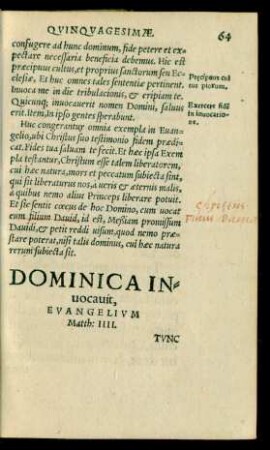 QVINQVAGESIMÆ. 64
confugere ad hunc dominum, fide petere et ex-
pectare necessaria beneficia debemus. Hic est
præcipuus cultus, et proprius sanctorum seu Ec-
clesiæ. Et huc omnes tales sententiæ pertinent.
Inuoca me in die tribulationis, & eripiam te.
Quicunq; inuocauerit nomen Domini, saluus
erit. Item, In ipso gentes sperabunt.
Præcipuus cul
tus piorum.
Exercere fidē
in inuocatio-
ne.
Huc congerantur omnia exempla in Euan-
gelio, ubi Christus suo testimonio fidem prædi-
cat. Fides tua saluam te fecit. Et hæc ipsa Exem
pla testantur, Christum esse talem liberatorem,
cui hæc natura, mors et peccatum subiecta sint,
qui sit liberaturus nos, a ueris & æternis malis,
a quibus nemo alius Princeps liberare potuit.
Et sic sentit cœcus de hoc Domino, cum uocat
eum filium Dauid, id est, Messiam promissum
Dauidi, & petit reddi uisum, quod nemo præ-
stare poterat, nisi talis dominus, cui hæc natura
rerum subiecta sit.
DOMINICA IN-
uocauit,
EVANGELIVM
Matth: IIII.
TVNC